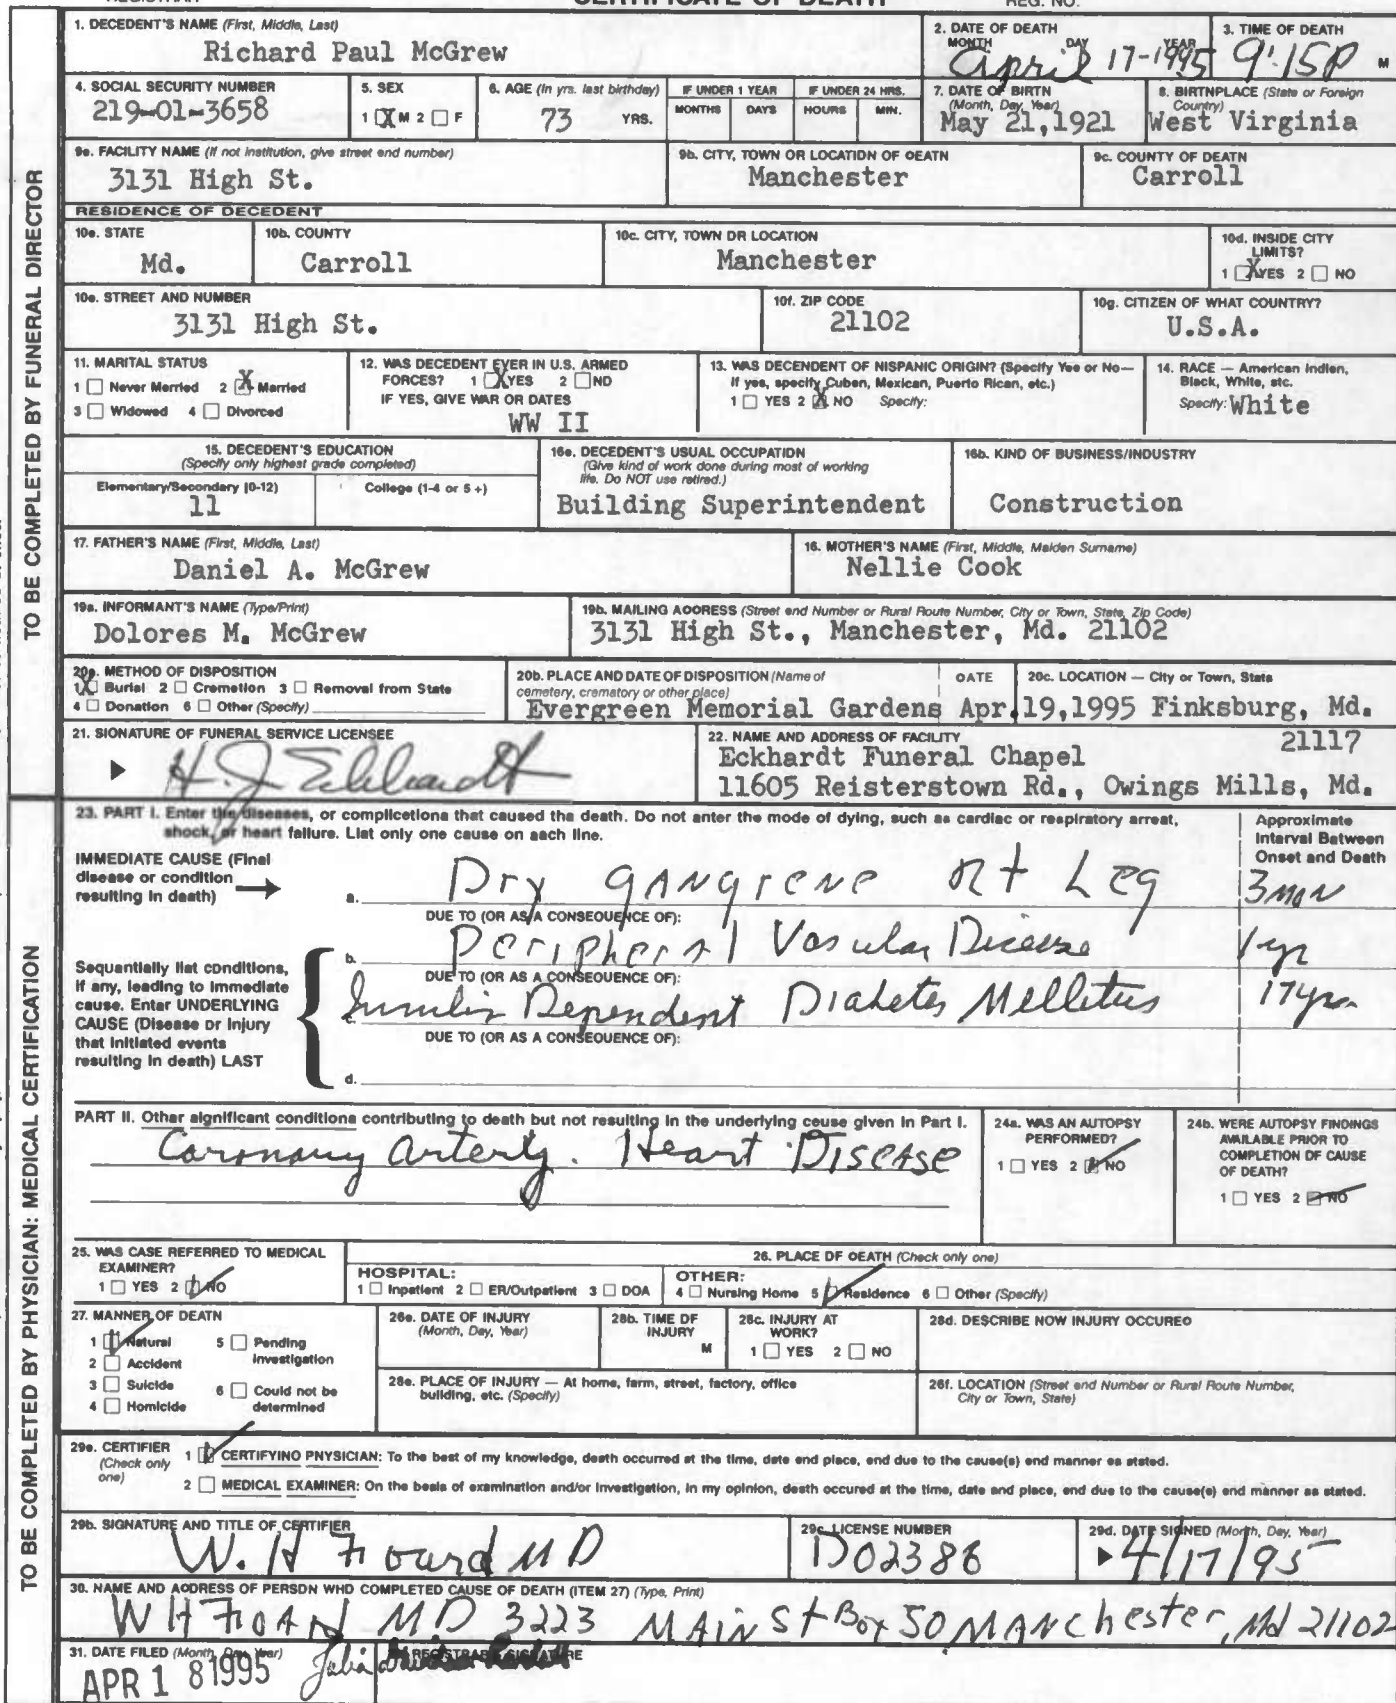 CERTIFICATE OF DEATH
REG. NO.
1. DECEDENT'S NAME (First, Middle, Last)
Richard Paul McGrew
2. DATE OF DEATH
MONTH DAY YEAR
April 17-1995
3. TIME OF DEATH
9:15P M
4. SOCIAL SECURITY NUMBER
219-01-3658
5. SEX
1 X M 2 F
6. AGE (In yrs. last birthday)
73 YRS.
IF UNDER 1 YEAR
MONTHS DAYS
IF UNDER 24 HRS.
HOURS MIN.
7. DATE OF BIRTH
(Month, Day, Year)
May 21,1921
8. BIRTHPLACE (State or Foreign Country)
West Virginia
9a. FACILITY NAME (If not institution, give street and number)
3131 High St.
9b. CITY, TOWN OR LOCATION OF DEATH
Manchester
9c. COUNTY OF DEATH
Carroll
RESIDENCE OF DECEDENT
10a. STATE
Md.
10b. COUNTY
Carroll
10c. CITY, TOWN OR LOCATION
Manchester
10d. INSIDE CITY LIMITS?
1 X YES 2 NO
10e. STREET AND NUMBER
3131 High St.
10f. ZIP CODE
21102
10g. CITIZEN OF WHAT COUNTRY?
U.S.A.
11. MARITAL STATUS
1 Never Married 2 X Married
3 Widowed 4 Divorced
12. WAS DECEDENT EVER IN U.S. ARMED
FORCES? 1 X YES 2 NO
IF YES, GIVE WAR OR DATES
WW II
13. WAS DECENDENT OF HISPANIC ORIGIN? (Specify Yes or No—
If yes, specify Cuban, Mexican, Puerto Rican, etc.)
1 YES 2 X NO Specify:
14. RACE — American Indian,
Black, White, etc.
Specify: White
15. DECEDENT'S EDUCATION
(Specify only highest grade completed)
Elementary/Secondary (0-12) College (1-4 or 5+)
11
16a. DECEDENT'S USUAL OCCUPATION
(Give kind of work done during most of working
life. Do NOT use retired.)
Building Superintendent
16b. KIND OF BUSINESS/INDUSTRY
Construction
17. FATHER'S NAME (First, Middle, Last)
Daniel A. McGrew
18. MOTHER'S NAME (First, Middle, Maiden Surname)
Nellie Cook
19a. INFORMANT'S NAME (Type/Print)
Dolores M. McGrew
19b. MAILING ADDRESS (Street and Number or Rural Route Number, City or Town, State, Zip Code)
3131 High St., Manchester, Md. 21102
20a. METHOD OF DISPOSITION
1 X Burial 2 Cremation 3 Removal from State
4 Donation 6 Other (Specify)
20b. PLACE AND DATE OF DISPOSITION (Name of
cemetery, crematory or other place)
DATE
20c. LOCATION — City or Town, State
Evergreen Memorial Gardens Apr.19,1995 Finksburg, Md.
21. SIGNATURE OF FUNERAL SERVICE LICENSEE
H. J. Eckhardt
22. NAME AND ADDRESS OF FACILITY
Eckhardt Funeral Chapel 21117
11605 Reisterstown Rd., Owings Mills, Md.
TO BE COMPLETED BY FUNERAL DIRECTOR
23. PART I. Enter the diseases, or complications that caused the death. Do not enter the mode of dying, such as cardiac or respiratory arrest,
shock, or heart failure. List only one cause on each line.
Approximate
Interval Between
Onset and Death
IMMEDIATE CAUSE (Final
disease or condition
resulting in death)
a. Dry gangrene Rt Leg 3 mon
DUE TO (OR AS A CONSEQUENCE OF):
b. Peripheral Vasular Disease 1 yr
DUE TO (OR AS A CONSEQUENCE OF):
c. Insulin Dependent Diabetes Mellitus 17 yrs
DUE TO (OR AS A CONSEQUENCE OF):
d.
Sequentially list conditions,
if any, leading to immediate
cause. Enter UNDERLYING
CAUSE (Disease or Injury
that initiated events
resulting in death) LAST
PART II. Other significant conditions contributing to death but not resulting in the underlying cause given in Part I.
Coronary artery. Heart Disease
24a. WAS AN AUTOPSY
PERFORMED?
1 YES 2 NO
24b. WERE AUTOPSY FINDINGS
AVAILABLE PRIOR TO
COMPLETION OF CAUSE
OF DEATH?
1 YES 2 NO
25. WAS CASE REFERRED TO MEDICAL
EXAMINER?
1 YES 2 NO
26. PLACE OF DEATH (Check only one)
HOSPITAL:
1 Inpatient 2 ER/Outpatient 3 DOA
OTHER:
4 Nursing Home 5 Residence 6 Other (Specify)
27. MANNER OF DEATH
1 Natural 5 Pending
2 Accident Investigation
3 Suicide 6 Could not be
4 Homicide determined
28a. DATE OF INJURY
(Month, Day, Year)
28b. TIME OF
INJURY
M
28c. INJURY AT
WORK?
1 YES 2 NO
28d. DESCRIBE HOW INJURY OCCURED
28e. PLACE OF INJURY — At home, farm, street, factory, office
building, etc. (Specify)
28f. LOCATION (Street and Number or Rural Route Number,
City or Town, State)
29a. CERTIFIER
(Check only
one)
1 CERTIFYING PHYSICIAN: To the best of my knowledge, death occurred at the time, date and place, and due to the cause(s) and manner as stated.
2 MEDICAL EXAMINER: On the basis of examination and/or investigation, in my opinion, death occured at the time, date and place, and due to the cause(s) and manner as stated.
29b. SIGNATURE AND TITLE OF CERTIFIER
W. H Foard MD
29c. LICENSE NUMBER
D02386
29d. DATE SIGNED (Month, Day, Year)
4/17/95
30. NAME AND ADDRESS OF PERSON WHO COMPLETED CAUSE OF DEATH (ITEM 27) (Type, Print)
MD 3223 MAIN St Box 50 MANchester, Md 21102
31. DATE FILED (Month, Day, Year)
APR 18 1995
REGISTRAR'S SIGNATURE
Julia
TO BE COMPLETED BY PHYSICIAN: MEDICAL CERTIFICATION